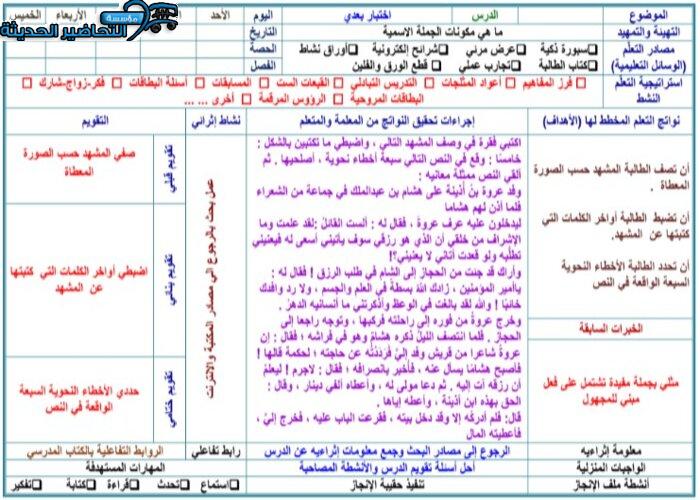 الموضوع
الدرس
اختبار بعدي
اليوم
الأحد
الأربعاء
الخميس
مؤسسة
التحاضير الحديثة
التهيئة والتمهيد
ما هي مكونات الجملة الاسمية
التاريخ
مصادر التعلم
(الوسائل التعليمية)
سبورة ذكية
عرض مرئي
شرائح إلكترونية
أوراق نشاط
الحصة
كتاب الطالبة
تجارب عملي
قطع الورق والفلين
الفصل
استراتيجية التعلم
النشط
فرز المفاهيم
أعواد المثلجات
التدريس التبادلي
القبعات الست
المسابقات
أسئلة البطاقات
فكر-زواج-شارك
البطاقات المروحية
الرؤوس المرقمة
أخرى ... ...
نواتج التعلم المخطط لها (الأهداف)
إجراءات تحقيق النواتج من المعلمة والمتعلم
نشاط إثرائي
التقويم
أن تصف الطالبة المشهد حسب الصورة
المعطاة .
أن تضبط الطالبة أواخر الكلمات التي
كتبتها عن المشهد.
أن تحدد الطالبة الأخطاء النحوية
السبعة الواقعة في النص
الخبرات السابقة
مثلي بجملة مفيدة تشتمل على فعل
مبني للمجهول
اكتبي فقرة في وصف المشهد التالي ، واضبطي ما تكتبين بالشكل :
خامسًا : وقع في النص التالي سبعة أخطاء نحوية ، أصلحيها . ثم
ألقي النص ممثلة معانيه :
وفد عروة بنُ أذينة على هشام بن عبدالملك في جماعة من الشعراء
فلما أذن لهم هشاما
ليدخلون عليه عرف عروةَ ، فقال له : ألست القائلُ :لقد علمت وما
الإشراف من خلقي أن الذي هو رزقي سوف يأتيني أسعى له فيعنيني
تطلُّبه ولو قعدت أتاني لا يعنيني؟!
وأراك قد جئت من الحجاز إلى الشام في طلب الرزق ! فقال له :
ياأمير المؤمنين ، زادك الله بسطةً في العلم والجسم ، ولا رد وافدك
خائبًا ! والله لقد بالغت في الوعظ وأذكرتني ما أنسانيه الدهرُ .
وخرج عروةُ من فوره إلى راحلته فركبها ، وتوجه راجعا إلى
الحجاز . فلما انتصف الليلُ ذكره هشامُ وهو في فراشه ؛ فقال : إن
عروةُ شاعرا من قريش وفد إليَّ فرَدَدْتُه عن حاجته ؛ لحكمة قالها !
فأصبح هشامًا يسأل عنه ، فأخبر بانصرافه ؛ فقال : لاجرم! ليعلمُ
أن رزقه آت إليه . ثم دعا مولى له ، وأعطاه ألفي دينار ، وقال :
الحق بهذه ابن أذينة ، وأعطه إياها .
قال: فلم أدركه إلا وقد دخل بيته ، فقرعت الباب عليه ، فخرج إليَّ ،
فأعطيته المال
عمل بحث بالرجوع إلى مصادر المكتبة والانترنت
تقويم قبلي
صفي المشهد حسب الصورة
المعطاة
تقويم بنائي
اضبطي أواخر الكلمات التي كتبتها
عن المشهد
تقويم ختامي
حددي الأخطاء النحوية السبعة
الواقعة في النص
معلومة إثرائيه
الرجوع إلى مصادر البحث وجمع معلومات إثراءيه عن الدرس
رابط تفاعلي
الروابط التفاعلية بالكتاب المدرسي
الواجبات المنزلية
أحل أسئلة تقويم الدرس والأنشطة المصاحبة
المهارات المستهدفة
أنشطة ملف الإنجاز
تنفيذ حقيبة الإنجاز
استماع
تحدث
قراءة
كتابة
تفكير